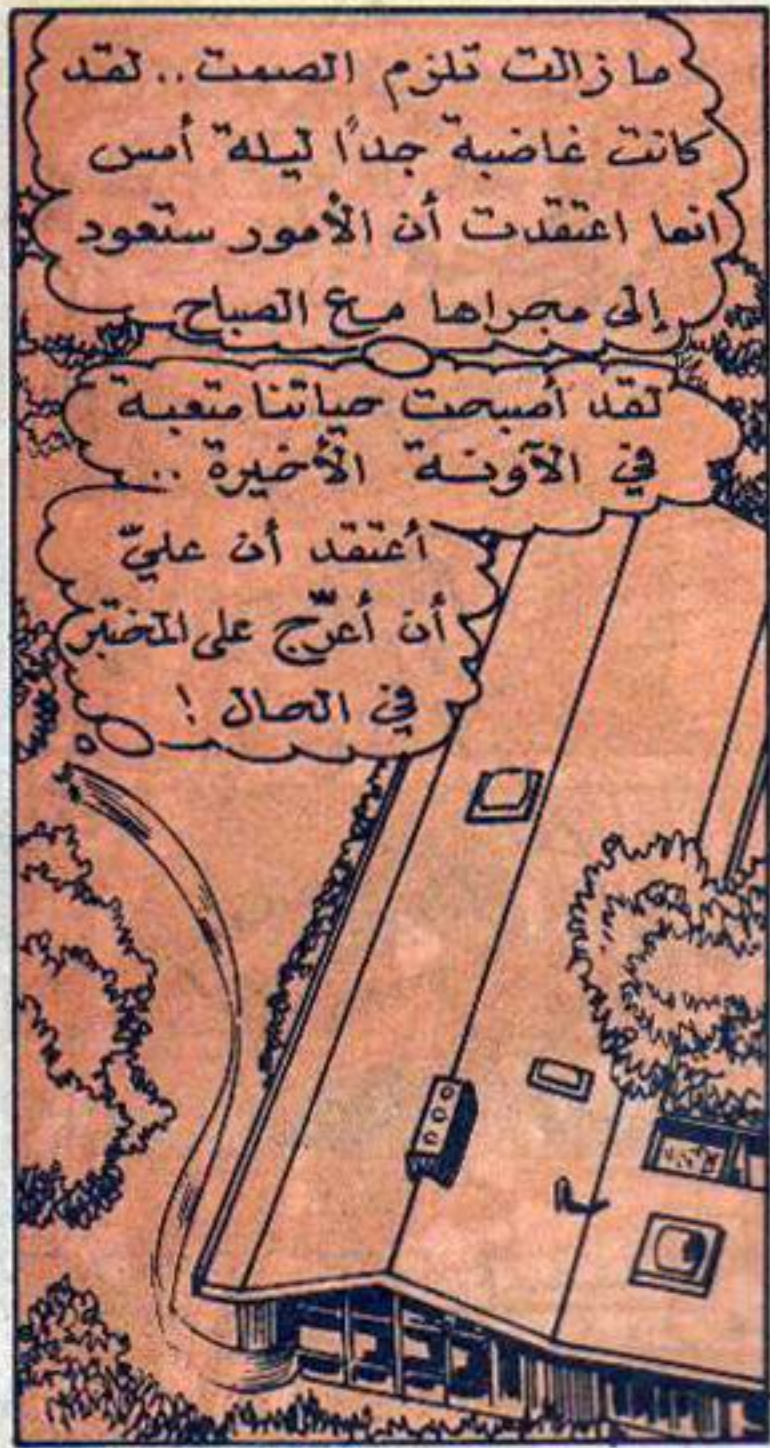 ما زالت تلزم الصمت.. لقد
كانت غاضبة جداً ليلة أمس
انما اعتقدت أن الأمور ستعود
إلى مجراها مع الصباح
لقد أصبحت حياتنا متعبة
في الآونة الأخيرة ..
أعتقد أن عليّ
أن أعرّج على المختبر
في الحال !